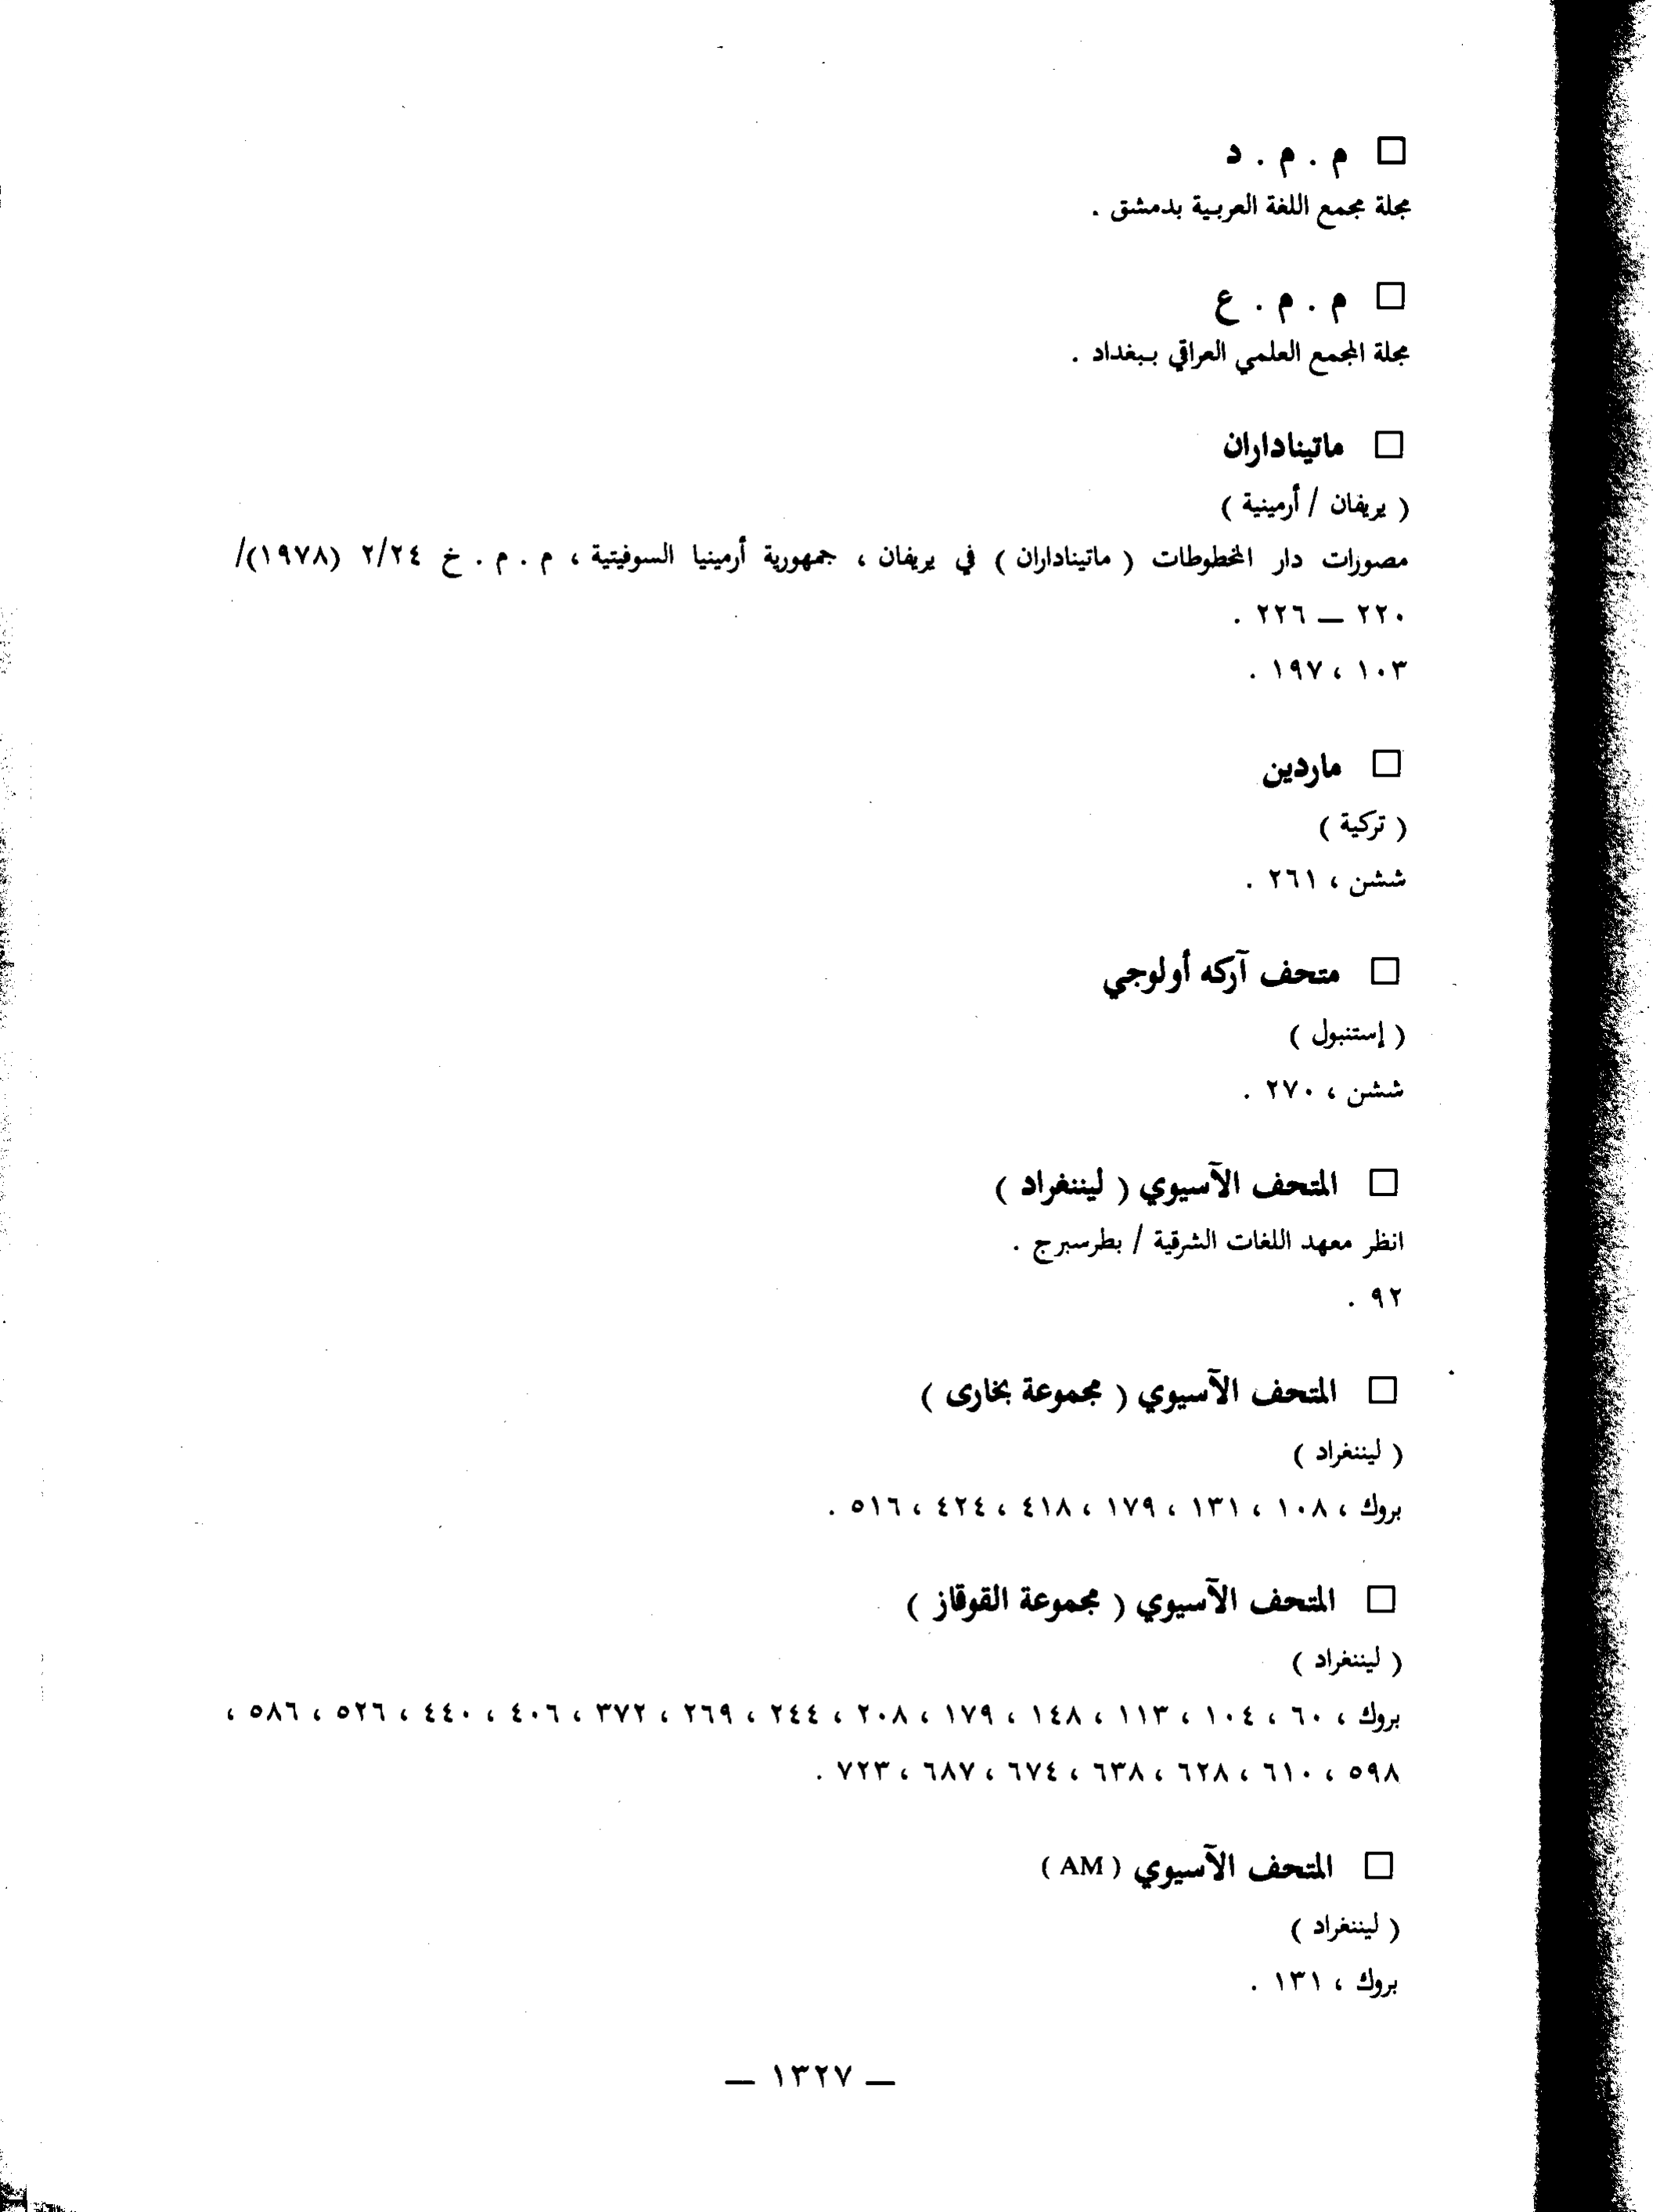 □ م . م . د
مجلة مجمع اللغة العربية بدمشق .
□ م . م . ع
مجلة المجمع العلمي العراقي ببغداد .
□ ماتيناداران
( يريفان / أرمينية )
مصورات دار المخطوطات ( ماتيناداران ) في يريفان ، جمهورية أرمينيا السوفيتية ، م . م . خ ٢/٢٤ (١٩٧٨)/
٢٢٠ — ٢٢٦ .
١٠٣ ، ١٩٧ .
□ ماردين
( تركية )
ششن ، ٢٦١ .
□ متحف آركه أولوجي
( إستنبول )
ششن ، ٢٧٠ .
□ المتحف الآسيوي ( ليننغراد )
انظر معهد اللغات الشرقية / بطرسبرج .
٩٢ .
□ المتحف الآسيوي ( مجموعة بخارى )
( ليننغراد )
بروك ، ١٠٨ ، ١٣١ ، ١٧٩ ، ٤١٨ ، ٤٢٤ ، ٥١٦ .
□ المتحف الآسيوي ( مجموعة القوقاز )
( ليننغراد )
بروك ، ٦٠ ، ١٠٤ ، ١١٣ ، ١٤٨ ، ١٧٩ ، ٢٠٨ ، ٢٤٤ ، ٢٦٩ ، ٣٧٢ ، ٤٠٦ ، ٤٤٠ ، ٥٢٦ ، ٥٨٦ ،
٥٩٨ ، ٦١٠ ، ٦٢٨ ، ٦٣٨ ، ٦٧٤ ، ٦٨٧ ، ٧٢٣ .
□ المتحف الآسيوي ( AM )
( ليننغراد )
بروك ، ١٣١ .
— ١٣٢٧ —